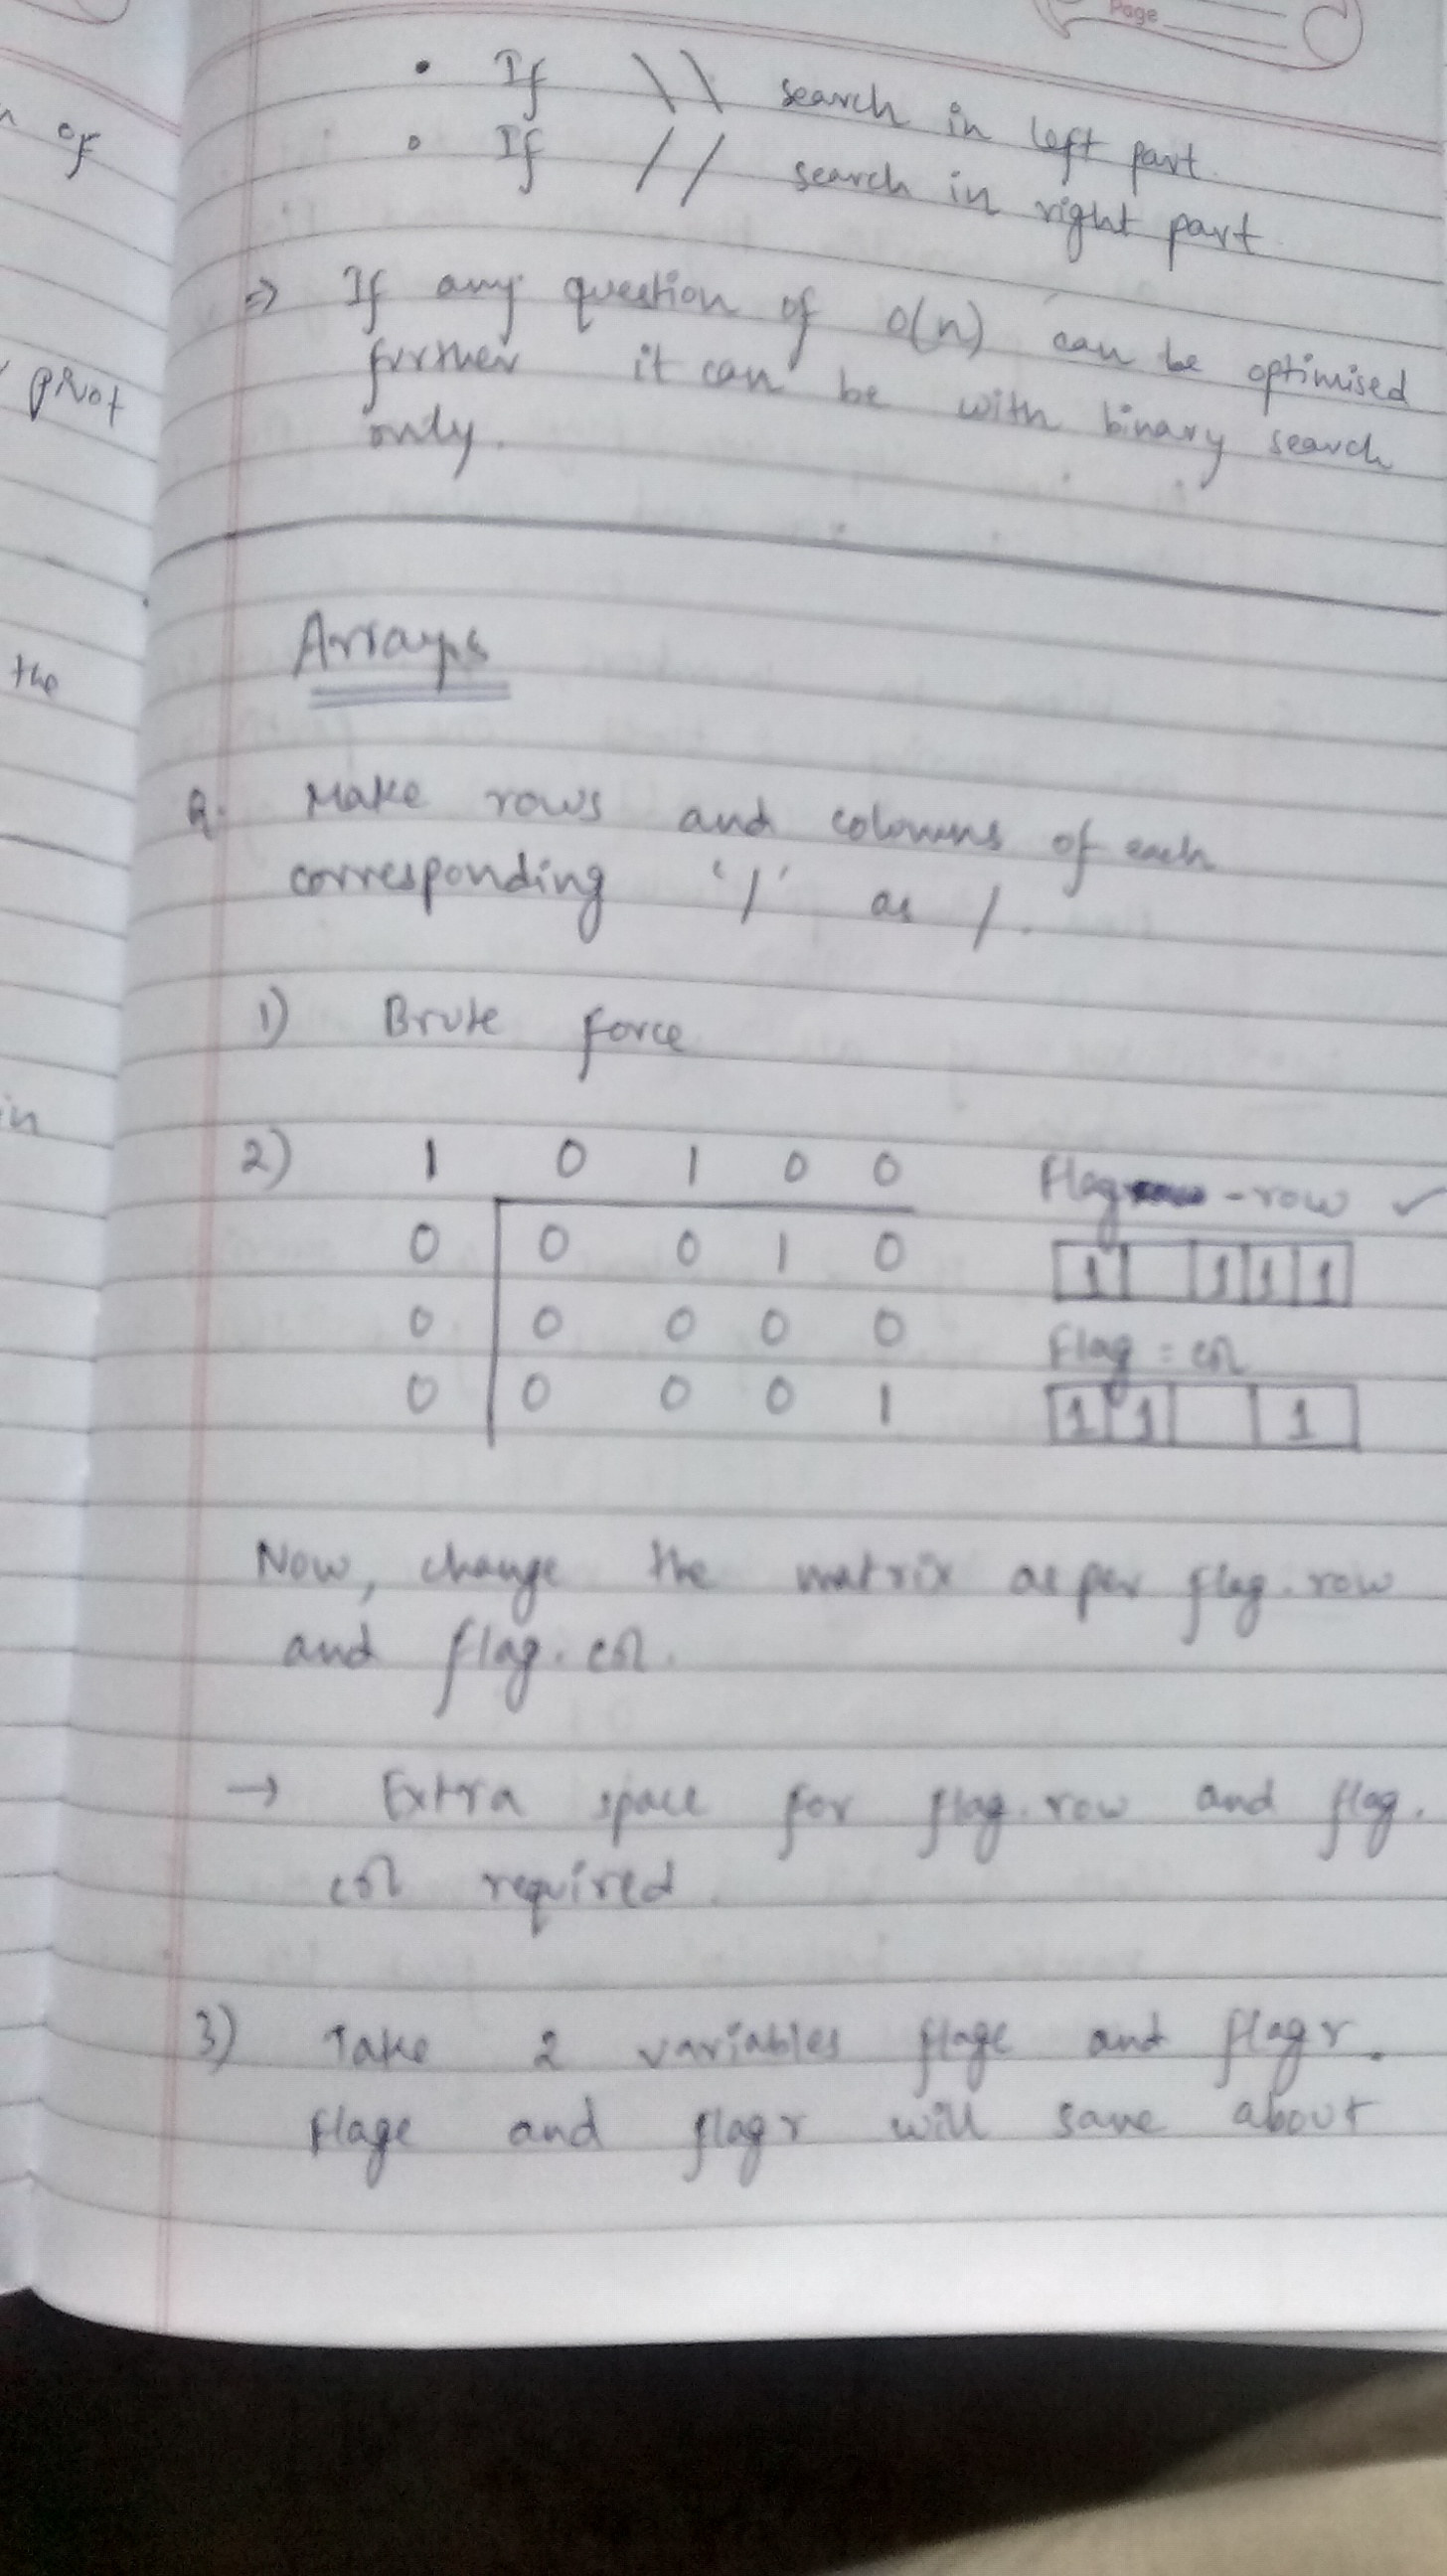 Page
of
pivot
the
in
• If \\ search in left part.
• If // search in right part
⇒ If any question of o(n) can be optimised
further it can be with binary search
only.
Arrays
Q. Make rows and colowns of each
corresponding '1' as 1.
1) Brute force
2) 1 0 1 0 0 Flag - row ✓
0 0 0 1 0 1 1 1 1
0 0 0 0 0 Flag = col
0 0 0 0 1 1 1 1
Now, change the matrix as per flag.row
and flag.col.
→ Extra space for flag.row and flag.
col required
3) Take 2 variables flagc and flagr.
flagc and flagr will save about